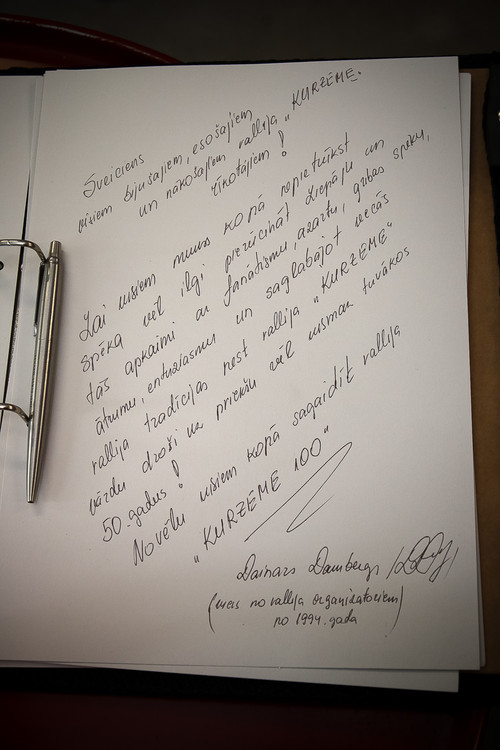 Sveiciens
visiem bijušajiem, esošajiem
un nākošajiem rallija „KURZEME"
rīkotājiem!
Lai visiem mums kopā nepietrūkst
spēka vēl ilgi pierūcināt Liepāju un
tās apkaimi ar fanātismu, azartu, gribas spēku,
ātrumu, entuziasmu un saglabājot vecās
rallija tradīcijas nest rallija „KURZEME"
vārdu droši uz priekšu vēl vismaz tuvākos
50.gadus!
Novēlu visiem kopā sagaidīt rallija
„KURZEME 100"
Dainars Dambergs
(viens no rallija organizatoriem)
no 1994.gada